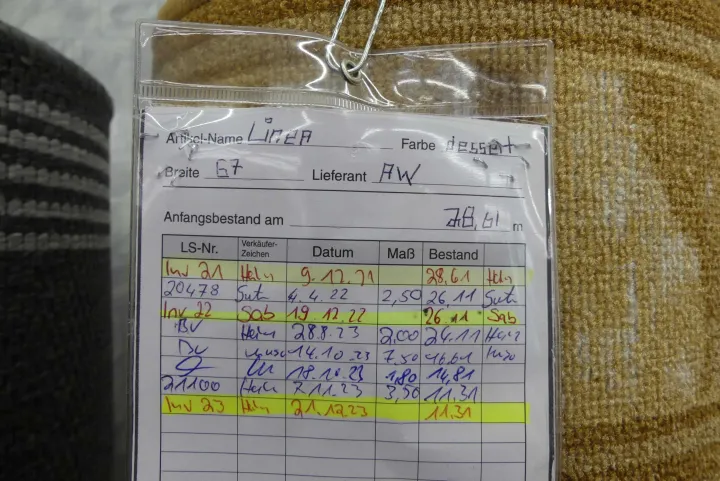 Artikel-Name Linea Farbe dessert
Breite 67 Lieferant AW
Anfangsbestand am 28,61 m
LS-Nr. Verkäufer-Zeichen Datum Maß Bestand
Inv 21 9.12.21 28.61
20478 4.4.22 2,50 26.11
Inv 22 Sab 19.12.22 26.11 Sab
BV 28.8.23 2,00 24.11
BV 14.10.23 7.50 16.61
18.10.23 1,80 14,81
21100 7.11.23 3,50 11.31
Inv 23 21.12.23 11.31